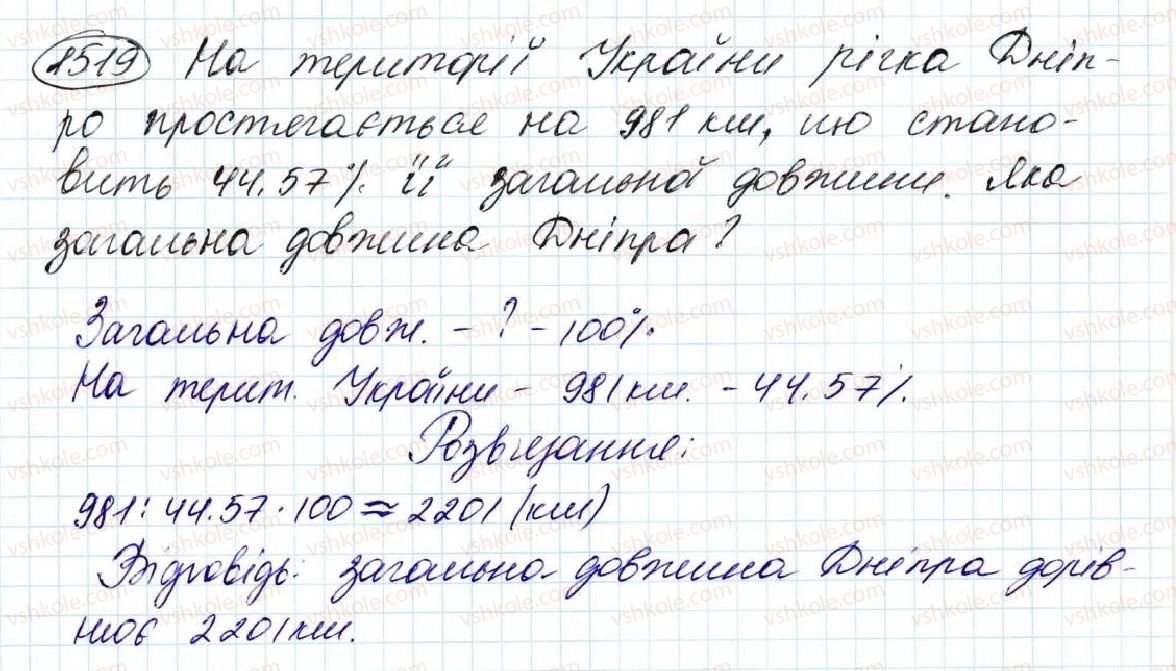 1519 На території України річка Дніп-
ро простягається на 981 км, що стано-
вить 44.57% її загальної довжини. Яка
загальна довжина Дніпра?
Загальна довж. - ? - 100%.
На терит. України - 981 км. - 44.57%.
Розв'язання:
981 : 44.57 · 100 ≈ 2201 (км)
Відповідь: загальна довжина Дніпра дорів-
нює 2201 км.